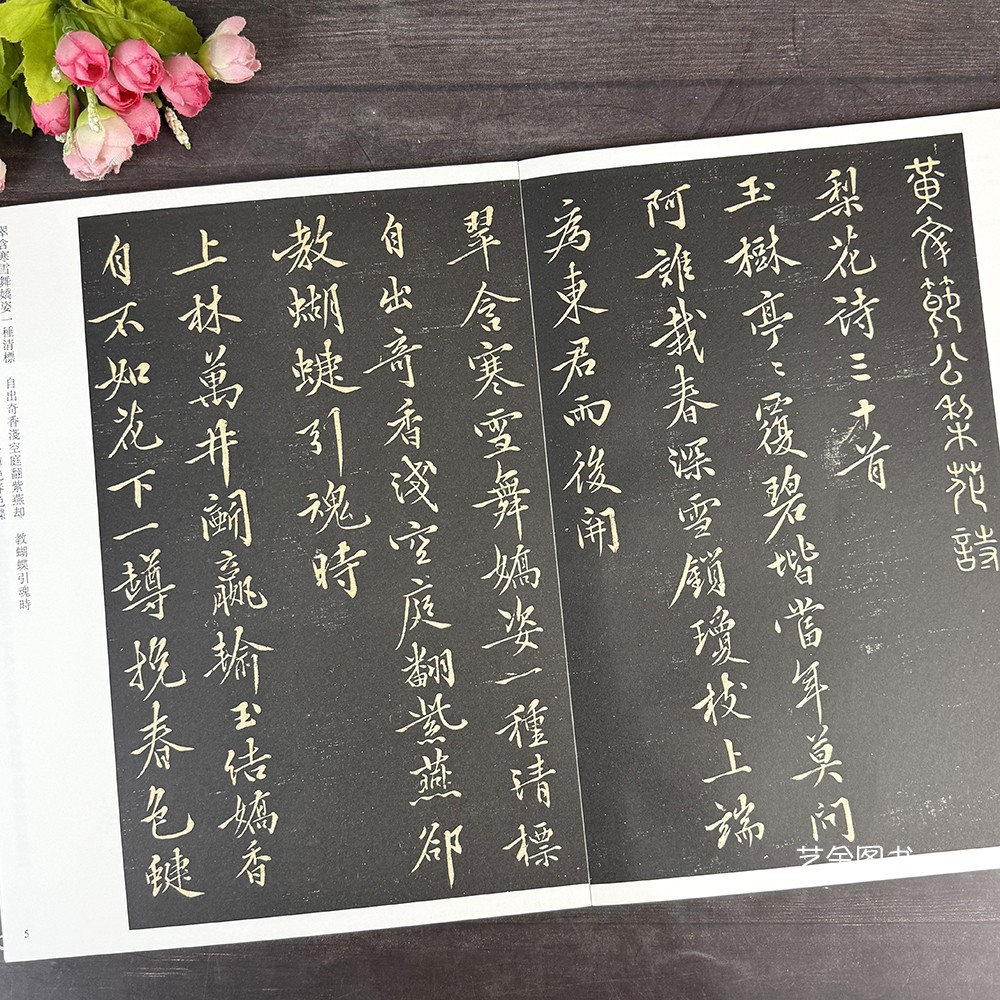 黄庠節公梨花詩
梨花诗三十首
玉樹亭〻覆碧堦當年莫问
阿誰栽春深雪鎖瓊枝上端
為東君雨後開
翠含寒雪舞嬌姿一種清標
自出奇香淺空庭翻紫燕卻
教蝴蝶引魂時
上林萬井鬭贏輸玉结嬌香
自不如花下一樽挽春色蝶
翠含寒雪舞嬌姿一種清標 自出奇香淺空庭翻紫燕却 教蝴蝶引魂時
5
艺金图书